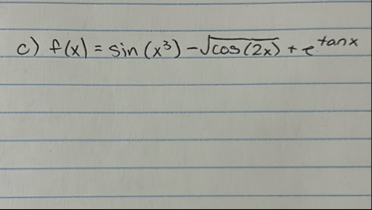 c) f(x) = sin (x³) - √cos(2x) + e^tanx